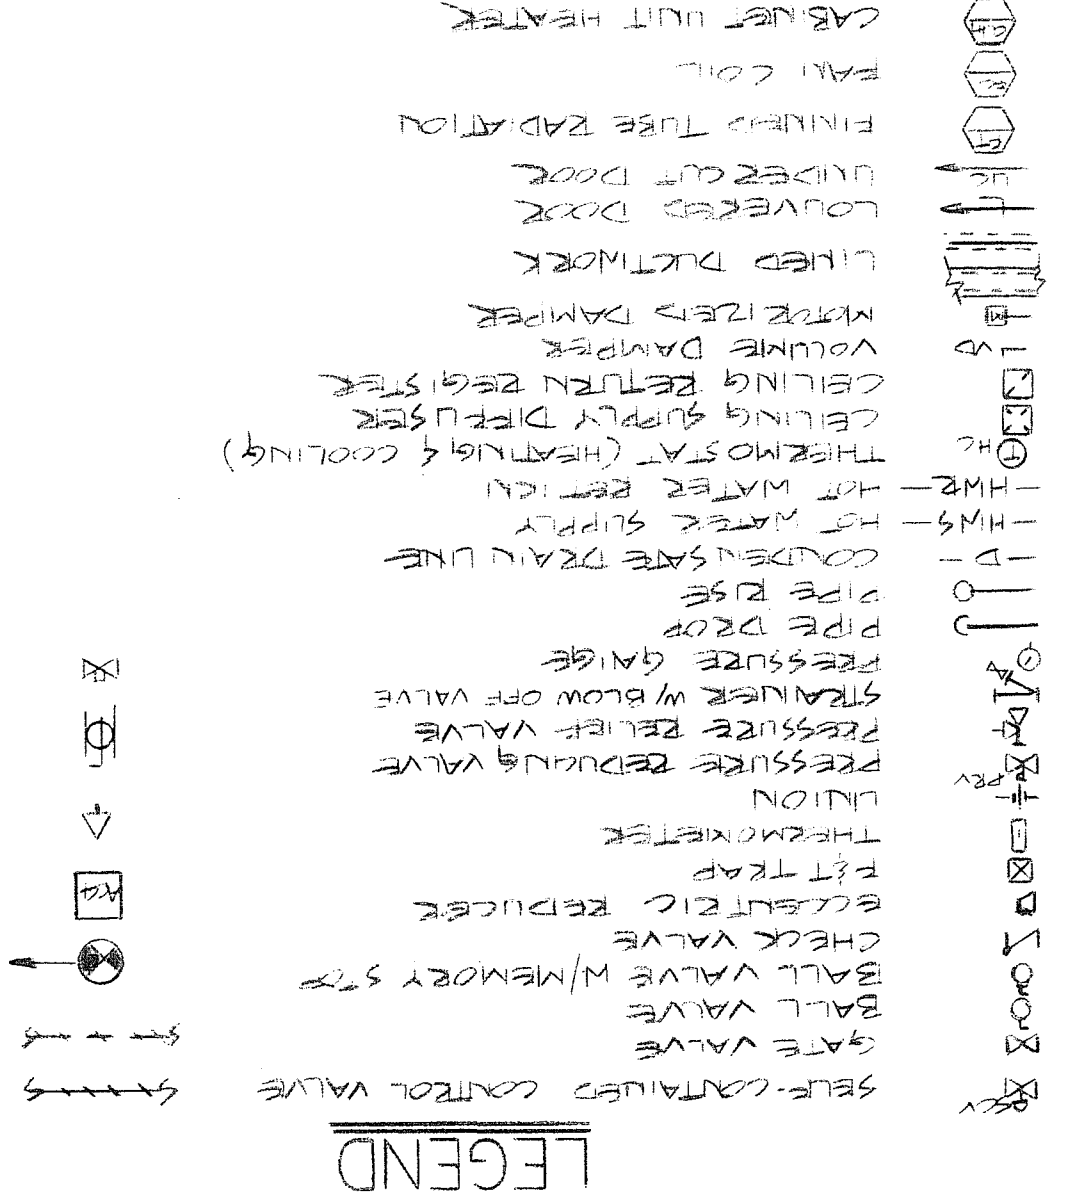 LEGEND
SCV SELF-CONTAINED CONTROL VALVE
GATE VALVE
BALL VALVE
M BALL VALVE W/MEMORY STOP
CHECK VALVE
ECCENTRIC REDUCER
F&T TRAP
THERMOMETER
UNION
PRV PRESSURE REDUCING VALVE
PRESSURE RELIEF VALVE
STRAINER W/ BLOW OFF VALVE
PRESSURE GAIGE
PIPE DROP
PIPE RISE
— D — CONDENSATE DRAIN LINE
— HWS — HOT WATER SUPPLY
— HWR — HOT WATER RETURN
T HC THERMOSTAT (HEATING & COOLING)
CEILING SUPPLY DIFFUSER
CEILING RETURN REGISTER
VD VOLUME DAMPER
M MOTORIZED DAMPER
LINED DUCTWORK
L LOUVERED DOOR
UC UNDERCUT DOOR
FINNED TUBE RADIATION
FAN COIL
CH CABINET UNIT HEATER